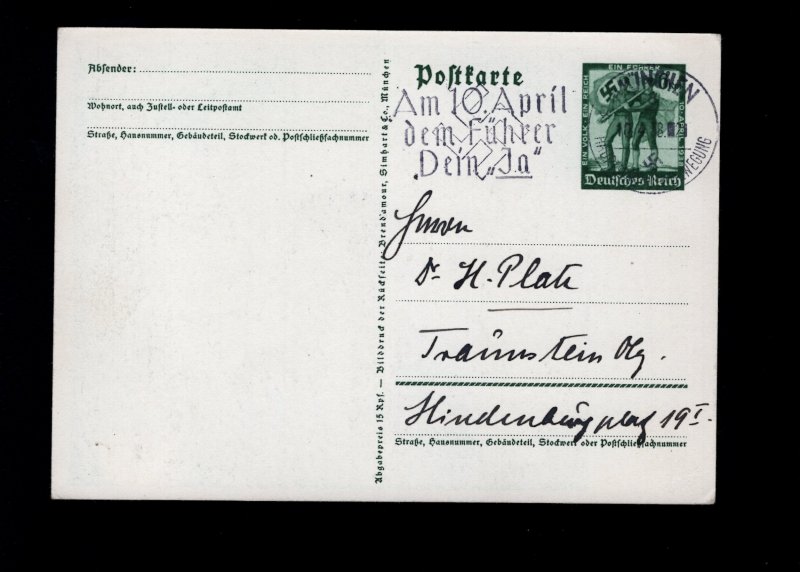 Absender:
Wohnort, auch Zustell- oder Leitpostamt
Straße, Hausnummer, Gebäudeteil, Stockwerk od. Postschließfachnummer
Abgabepreis 15 Rpf. — Bilddruck der Rückseite Brend'amour, Simhart & Co., München
Postkarte
Am 10. April
dem Führer
Dein „Ja"
EIN VOLK · EIN REICH
EIN FÜHRER
10. APRIL 1938
Deutsches Reich
MÜNCHEN
BEWEGUNG
Herrn
Dr. H. Platz
Traunstein Obg.
Hindenburgplatz 19 I.
Straße, Hausnummer, Gebäudeteil, Stockwerk oder Postschließfachnummer